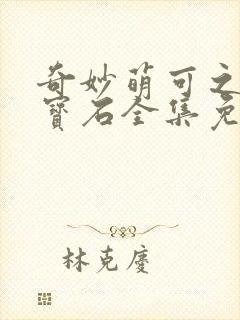 奇妙萌可之
寶石全集免
林克慶